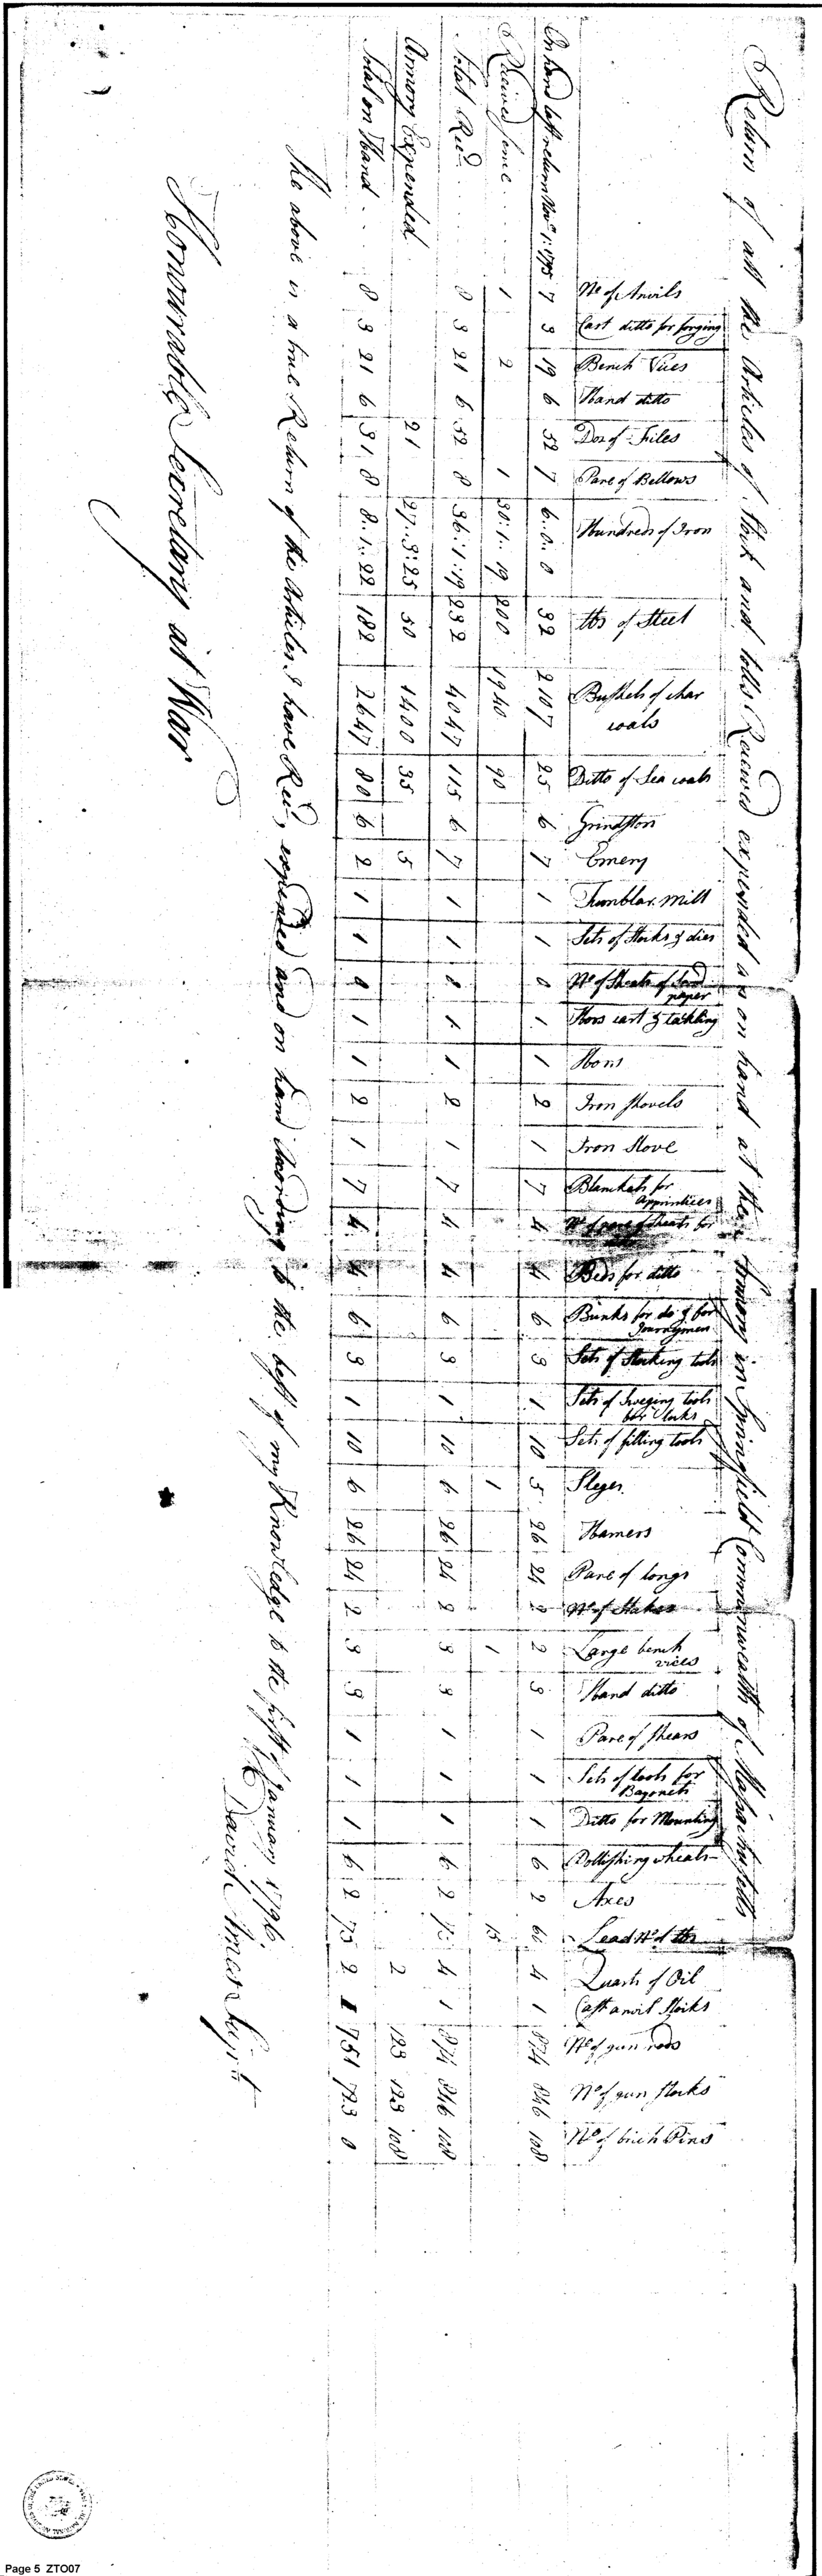 Return of all the Articles of Stock and tolls Received expended & on hand at the Armory in Springfield Commonwealth of Massachusetts
No of Anvils
Cast ditto for forging
Bench Vices
Hand ditto
Doz of Files
Pare of Bellows
Hundreds of Iron
lbs of Steel
Bushels of char coals
Ditto of Sea coals
Grindston
Emery
Tumblar Mill
Sets of Stocks & dies
No of Sheats of Sand paper
Hors cart & tackling
Hors
Iron Shovels
Iron Stove
Blankets for Apprintices
No of pare of Sheats for
Beds for ditto
Bunks for do & for Journeymen
Sets of Stocking tools
Sets of Sweging tools for Locks
Sets of filling tools
Sleges
Hamers
Pare of tongs
No of Stakes
Large bench vices
Hand ditto
Pare of Shears
Sets of tools for Bayonets
Ditto for Mounting
Pollishing wheals
Axes
Lead No of lbs
Quarts of Oil
Cast anvil Stocks
No of gun rods
No of gun Stocks
No of birch Pins
On hand last return Novr 1: 1795 7 3 19 6 52 7 6..0..0 32 2107 25 6 7 1 1 0 1 1 2 1 7 4 4 6 3 1 10 5 26 24 2 2 3 1 1 1 6 2 60 4 1 874 846 108
Received Since 1 2 1 30..1..19 200 1940 90 1 1 15
Total Recd 8 3 21 6 52 8 36..1..19 232 4047 115 6 7 1 1 0 1 1 2 1 7 4 4 6 3 1 10 6 26 24 2 3 3 1 1 1 6 2 75 4 1 874 846 108
Armory Expended 21 27..3..25 50 1400 35 5 2 123 123 108
Total on Hand 8 3 21 6 31 8 8..1..22 182 2647 80 6 2 1 1 0 1 1 2 1 7 4 4 6 3 1 10 6 26 24 2 3 3 1 1 1 6 2 75 2 1 751 723 0
The above is a true Return of the Articles I have Recd, expended and on hand According to the best of my Knowledge to the first of January 1796
David Ames
Honourable Secretary at War
Page 5 ZTO07